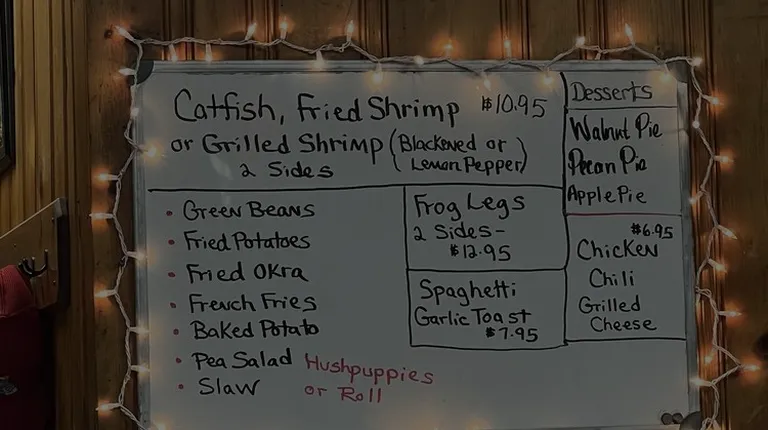 Catfish, Fried Shrimp $10.95
or Grilled Shrimp (Blackened or Lemon Pepper)
2 Sides
• Green Beans
• Fried Potatoes
• Fried Okra
• French Fries
• Baked Potato
• Pea Salad
• Slaw
Hushpuppies
or Roll
Frog Legs
2 Sides-
$12.95
Spaghetti
Garlic Toast
$7.95
Desserts
Walnut Pie
Pecan Pie
Apple Pie
$6.95
Chicken
Chili
Grilled
Cheese